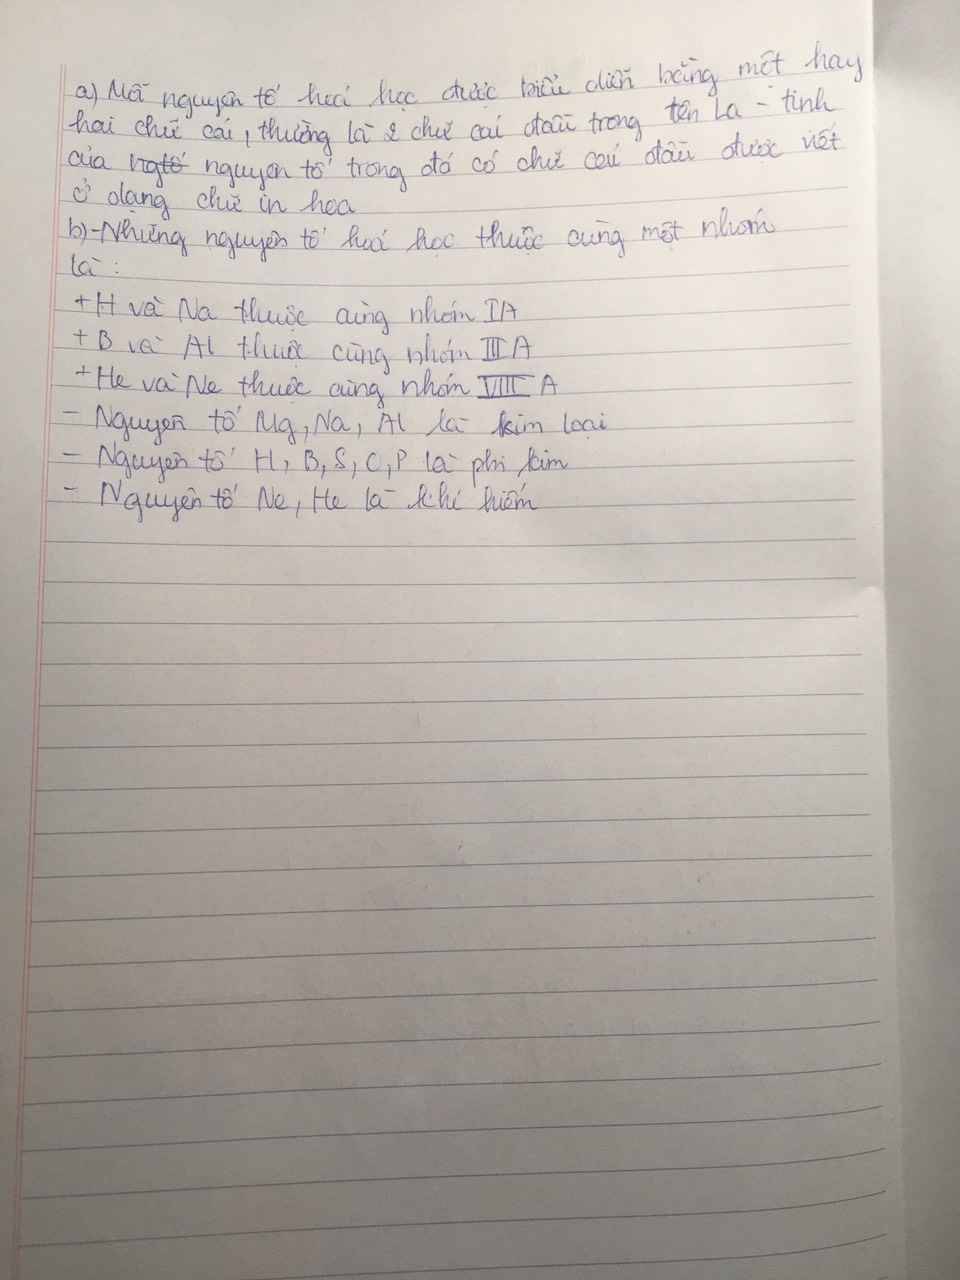 a) Mỗi nguyên tố hoá học được biểu diễn bằng một hay
hai chữ cái, thường là 2 chữ cái đầu trong tên La - tinh
của ngtố nguyên tố trong đó có chữ cái đầu được viết
ở dạng chữ in hoa
b) - Những nguyên tố hoá học thuộc cùng một nhóm
là :
+ H và Na thuộc cùng nhóm IA
+ B và Al thuộc cùng nhóm III A
+ He và Ne thuộc cùng nhóm VIII A
- Nguyên tố Mg, Na, Al là kim loại
- Nguyên tố H, B, S, C, P là phi kim
- Nguyên tố Ne, He là khí hiếm